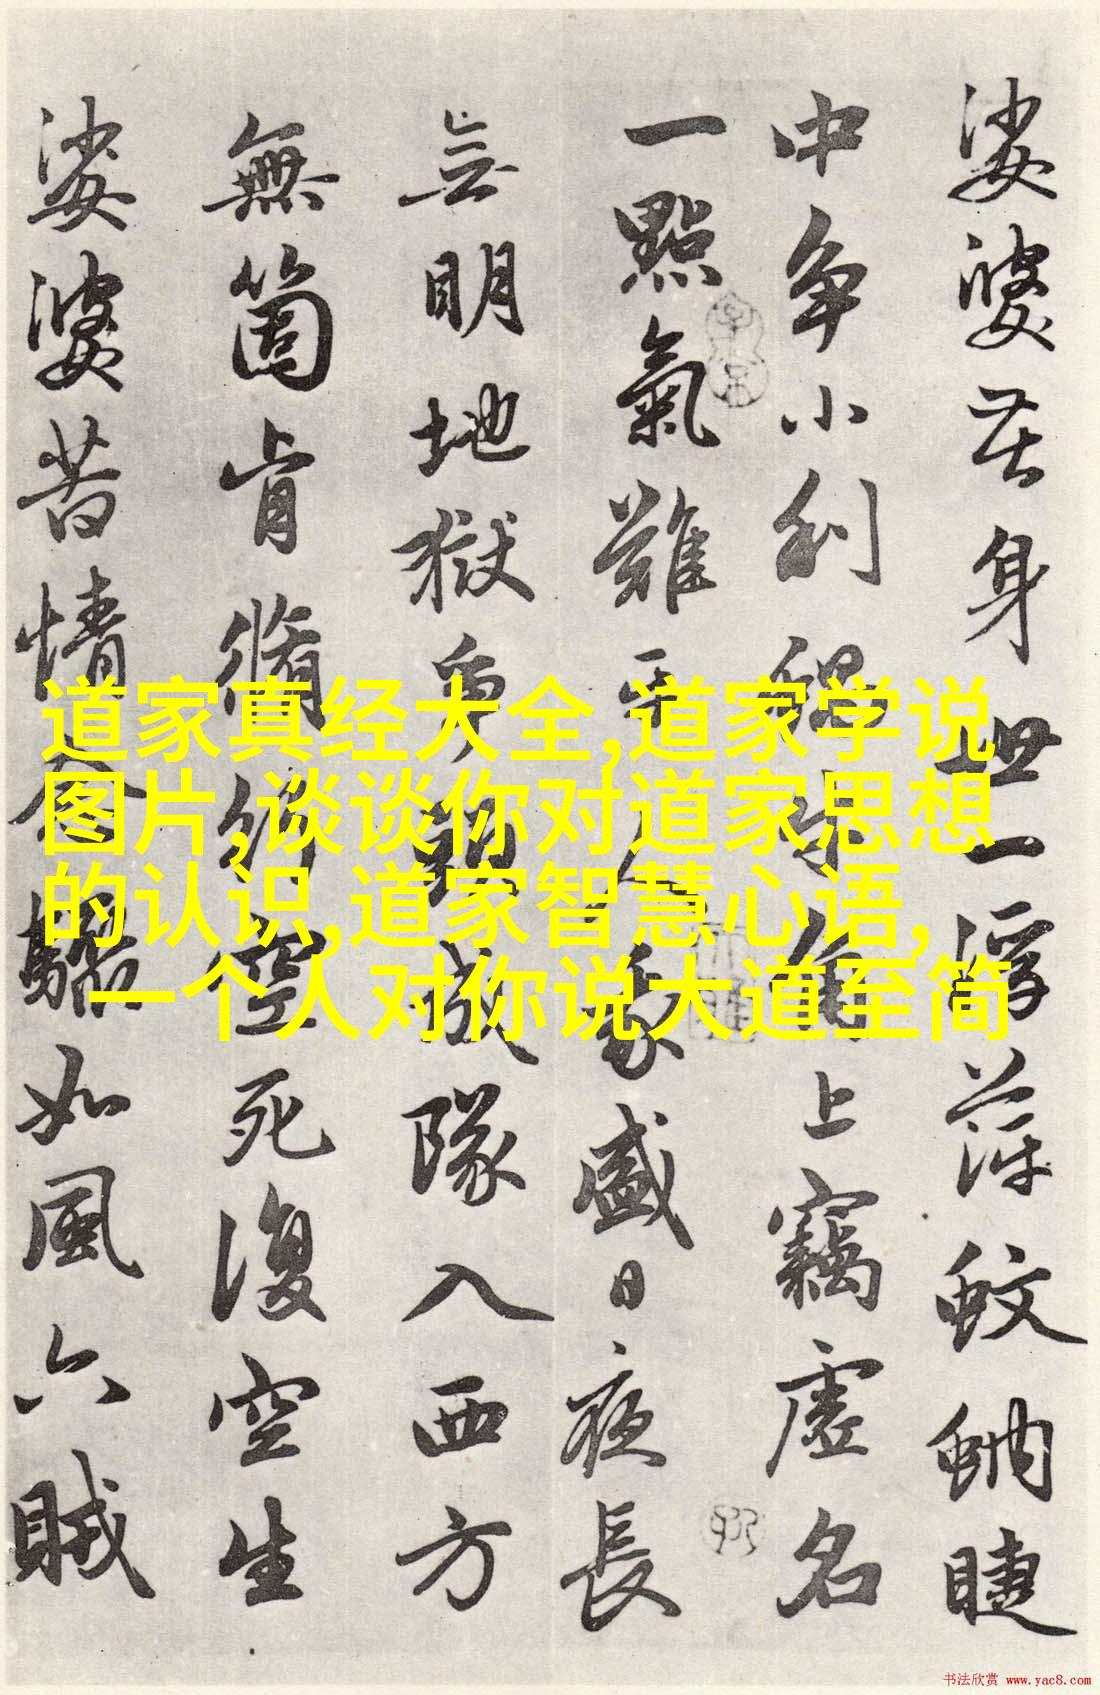 娑婆苦身世一浮萍蚊蚋睫
中争小利蝸牛角上竊虚名
一點氣難平人我盛日夜長
无明地獄爭頭成隊入西方
無箇肯脩行空死復空生
娑婆苦情念驟如風六賊
道家真经大全,道家学说
图片,谈谈你对道家思想
的认识,道家智慧心语,
一个人对你说大道至简
书法欣赏 www.yac8.com